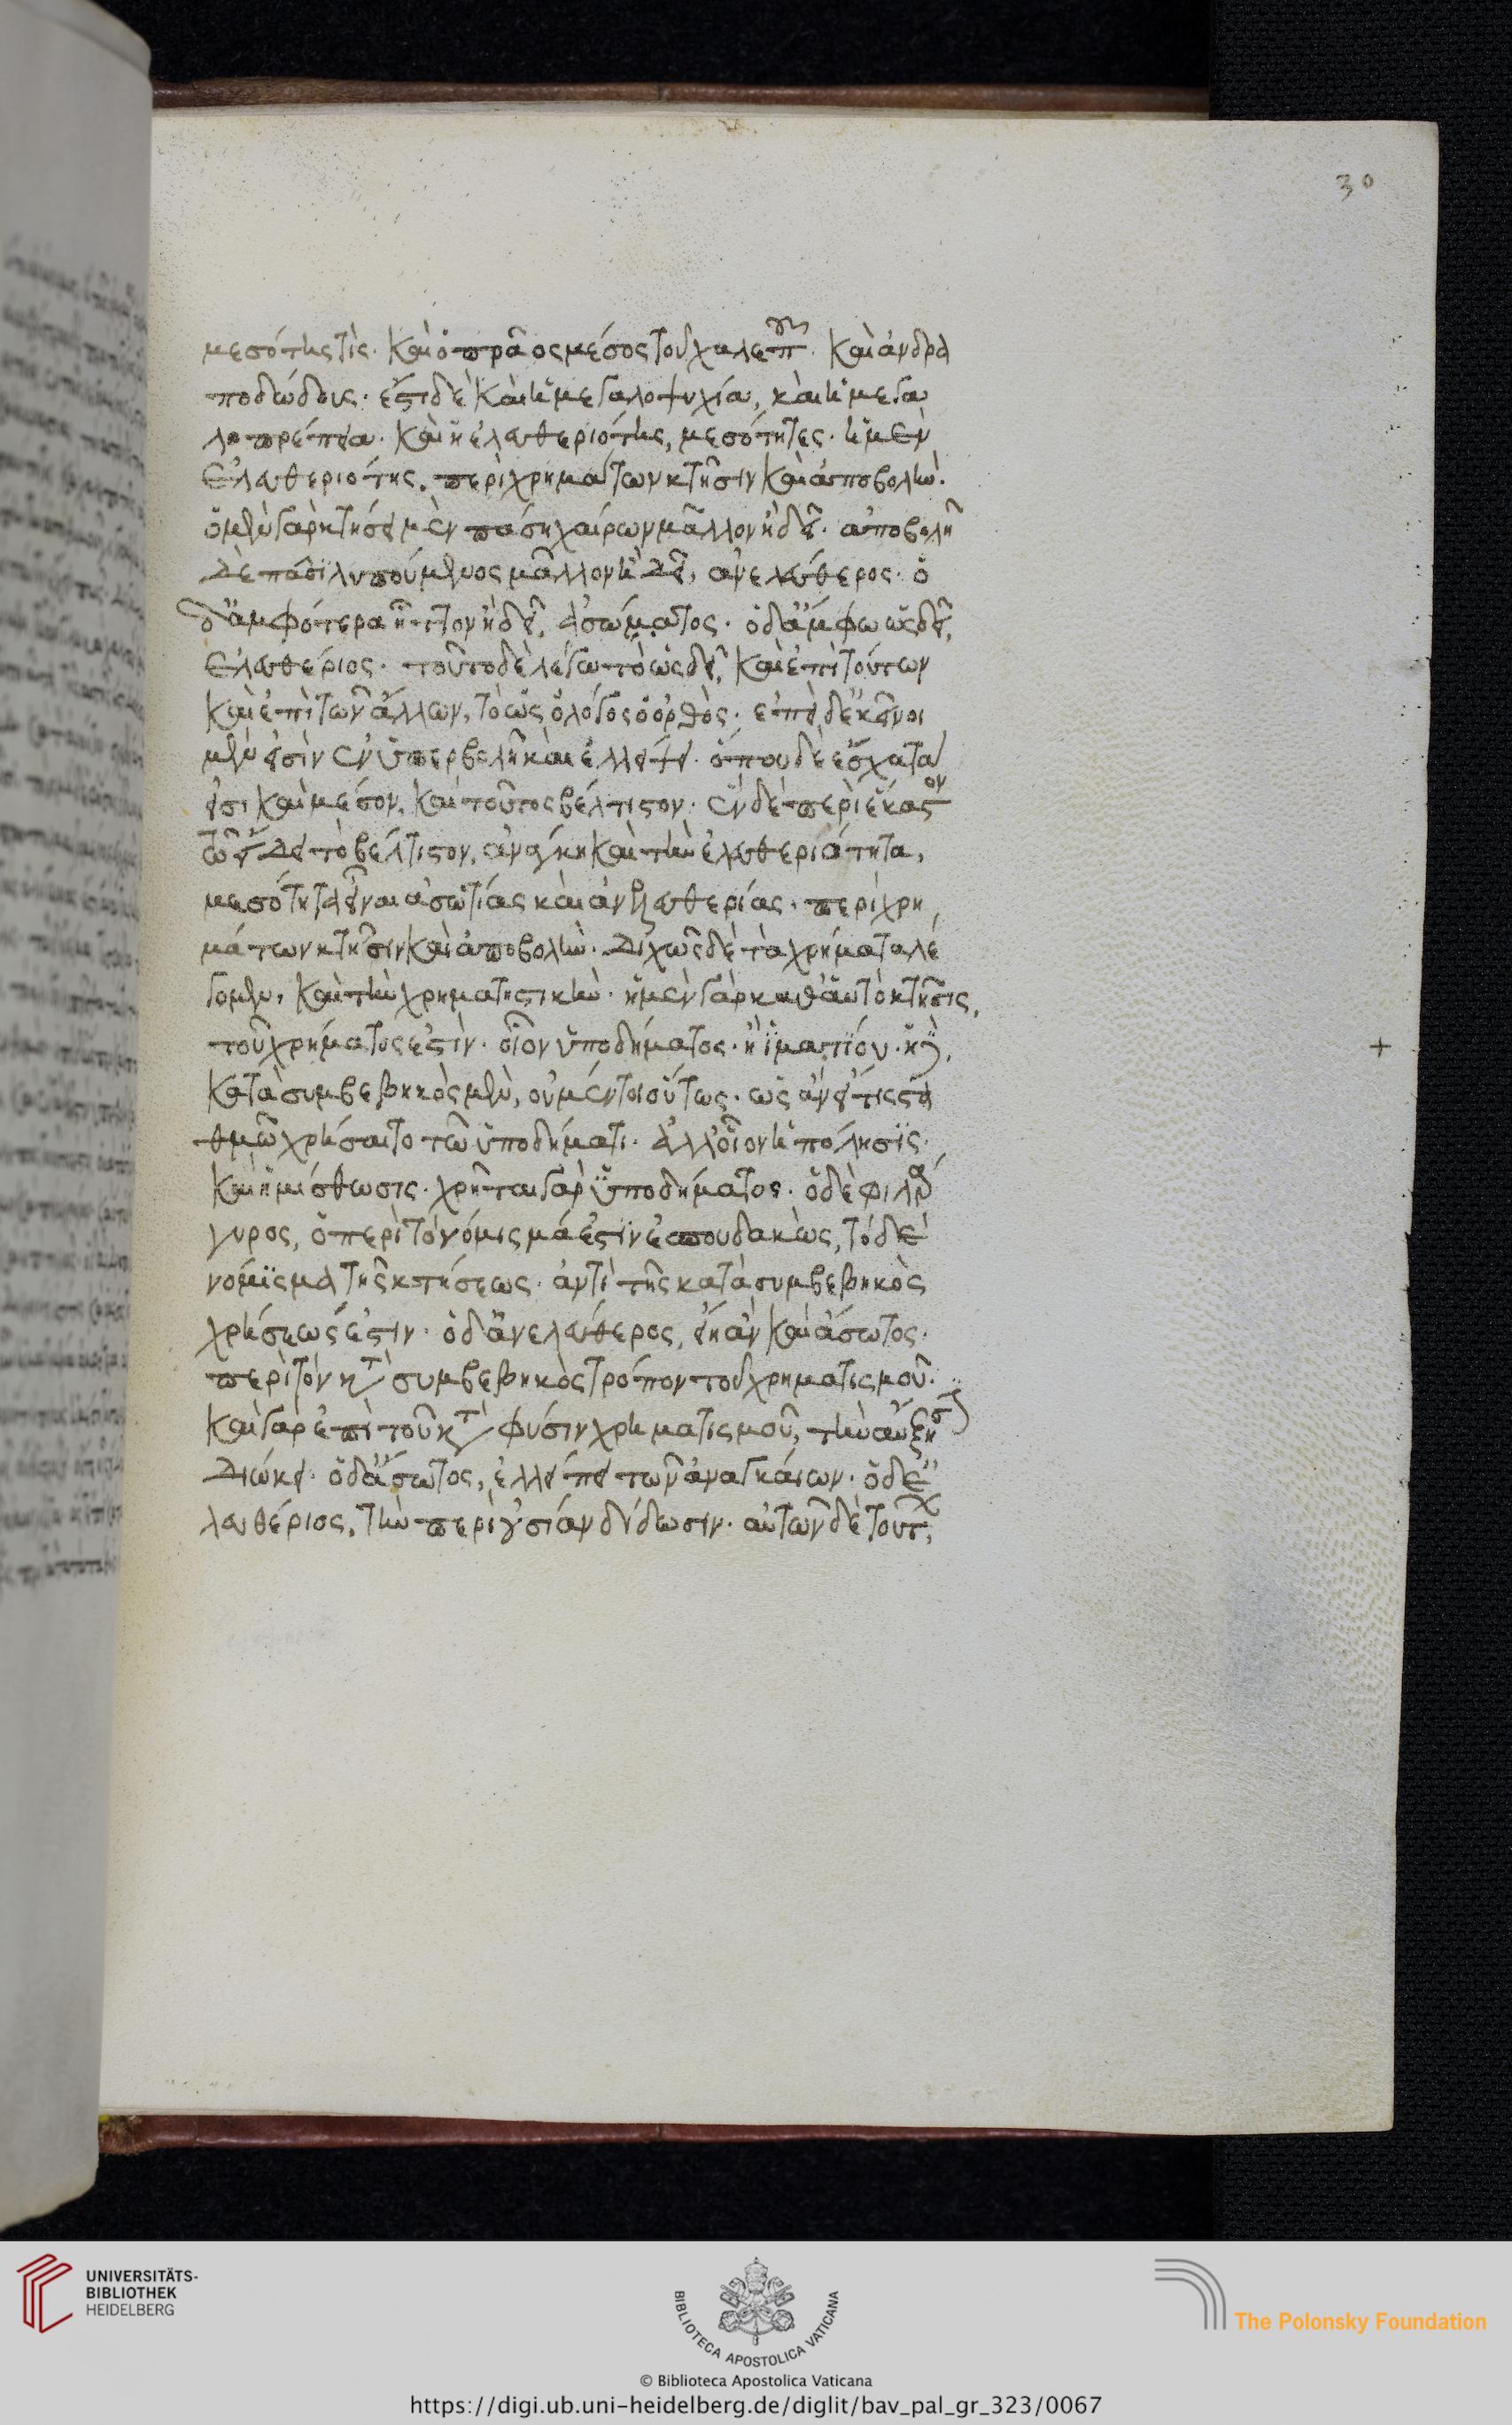 30
μεσότης τίς· καὶ ὁ πρᾶος μέσος τοῦ χαλεποῦ· καὶ ἀνδρα
ποδώδους· ἔστι δὲ καὶ ἡ μεγαλοψυχία, καὶ ἡ μεγα
λοπρέπεια· καὶ ἡ ἐλευθεριότης, μεσότητες· ἡ μὲν
ἐλευθεριότης, περὶ χρημάτων κτῆσιν καὶ ἀποβολήν·
ὁ μὲν γὰρ κτήσει μὲν πάσῃ χαίρων μᾶλλον ἢ δεῖ· ἀποβολῇ
δὲ πάσῃ λυπούμενος μᾶλλον ἢ δεῖ, ἀνελεύθερος· ὁ
δ' ἀμφότερα ἧττον ἢ δεῖ, ἀσώματος· ὁ δ' ἄμφω ὡς δεῖ,
ἐλευθέριος· τοῦτο δὲ λέγω τὸ ὡς δεῖ, καὶ ἐπὶ τούτων
καὶ ἐπὶ τῶν ἄλλων, τὸ ὡς ὁ λόγος ὁ ὀρθὸς· ἐπεὶ δ' ἐκεῖνοι
μέν εἰσιν ἐν ὑπερβολῇ καὶ ἐλλείψει· ὅπου δὲ ἔσχατα
εἰσι καὶ μέσον, καὶ τοῦτος βέλτιστον· ἓν δὲ περὶ ἕκαστον
τῷ εἴδει τὸ βέλτιστον, ἀνάγκη καὶ τὴν ἐλευθεριότητα,
μεσότητα εἶναι ἀσωτίας καὶ ἀνελευθερίας· περὶ χρη
μάτων κτῆσιν καὶ ἀποβολήν· διχῶς δὲ τὰ χρήματα λέ
γομεν, καὶ τὴν χρηματιστικήν· ἡ μὲν γὰρ καθ' αὑτὸ κτῆσις,
τοῦ χρήματος ἐστὶν· οἷον ὑποδήματος· ἢ ἱματίου· ἡ δὲ,
κατὰ συμβεβηκὸς μὲν, οὐ μέντοι οὕτως· ὡς ἂν εἴ τις στα
θμῷ χρήσαιτο τῷ ὑποδήματι· ἀλλ' οἷον ἡ πώλησις·
καὶ ἡ μίσθωσις· χρῆται γὰρ ὑποδήματος· ὁ δὲ φιλάρ
γυρος, ὁ περὶ τὸ νόμισμά ἐστιν ἐσπουδακὼς, τὸ δὲ
νόμισμα τῆς κτήσεως· ἀντὶ τῆς κατὰ συμβεβηκὸς
χρήσεως ἐστιν· ὁ δ' ἀνελεύθερος, εἴη ἂν καὶ ἄσωτος·
περὶ τὸν κατὰ συμβεβηκὸς τρόπον τοῦ χρηματισμοῦ·
καὶ γὰρ ἐπὶ τοῦ κατὰ φύσιν χρηματισμοῦ, τὴν αὔξησιν
διώκει· ὁ δ' ἄσωτος, ἐλλείπει τῶν ἀναγκαίων· ὁ δ' ἐ
λευθέριος, τὴν περιουσίαν δίδωσιν· αὐτῶν δὲ τούτων,
+
UNIVERSITÄTS-
BIBLIOTHEK
HEIDELBERG
BIBLIOTECA APOSTOLICA VATICANA
The Polonsky Foundation
© Biblioteca Apostolica Vaticana
https://digi.ub.uni-heidelberg.de/diglit/bav_pal_gr_323/0067